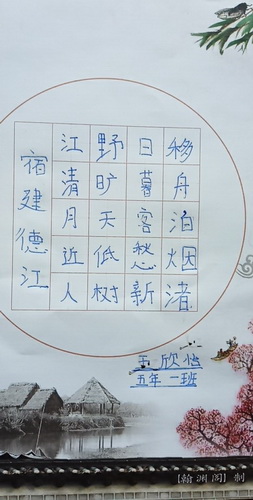 宿建德江
移舟泊烟渚
日暮客愁新
野旷天低树
江清月近人
王欣怡
五年一班
【翰渊阁】制